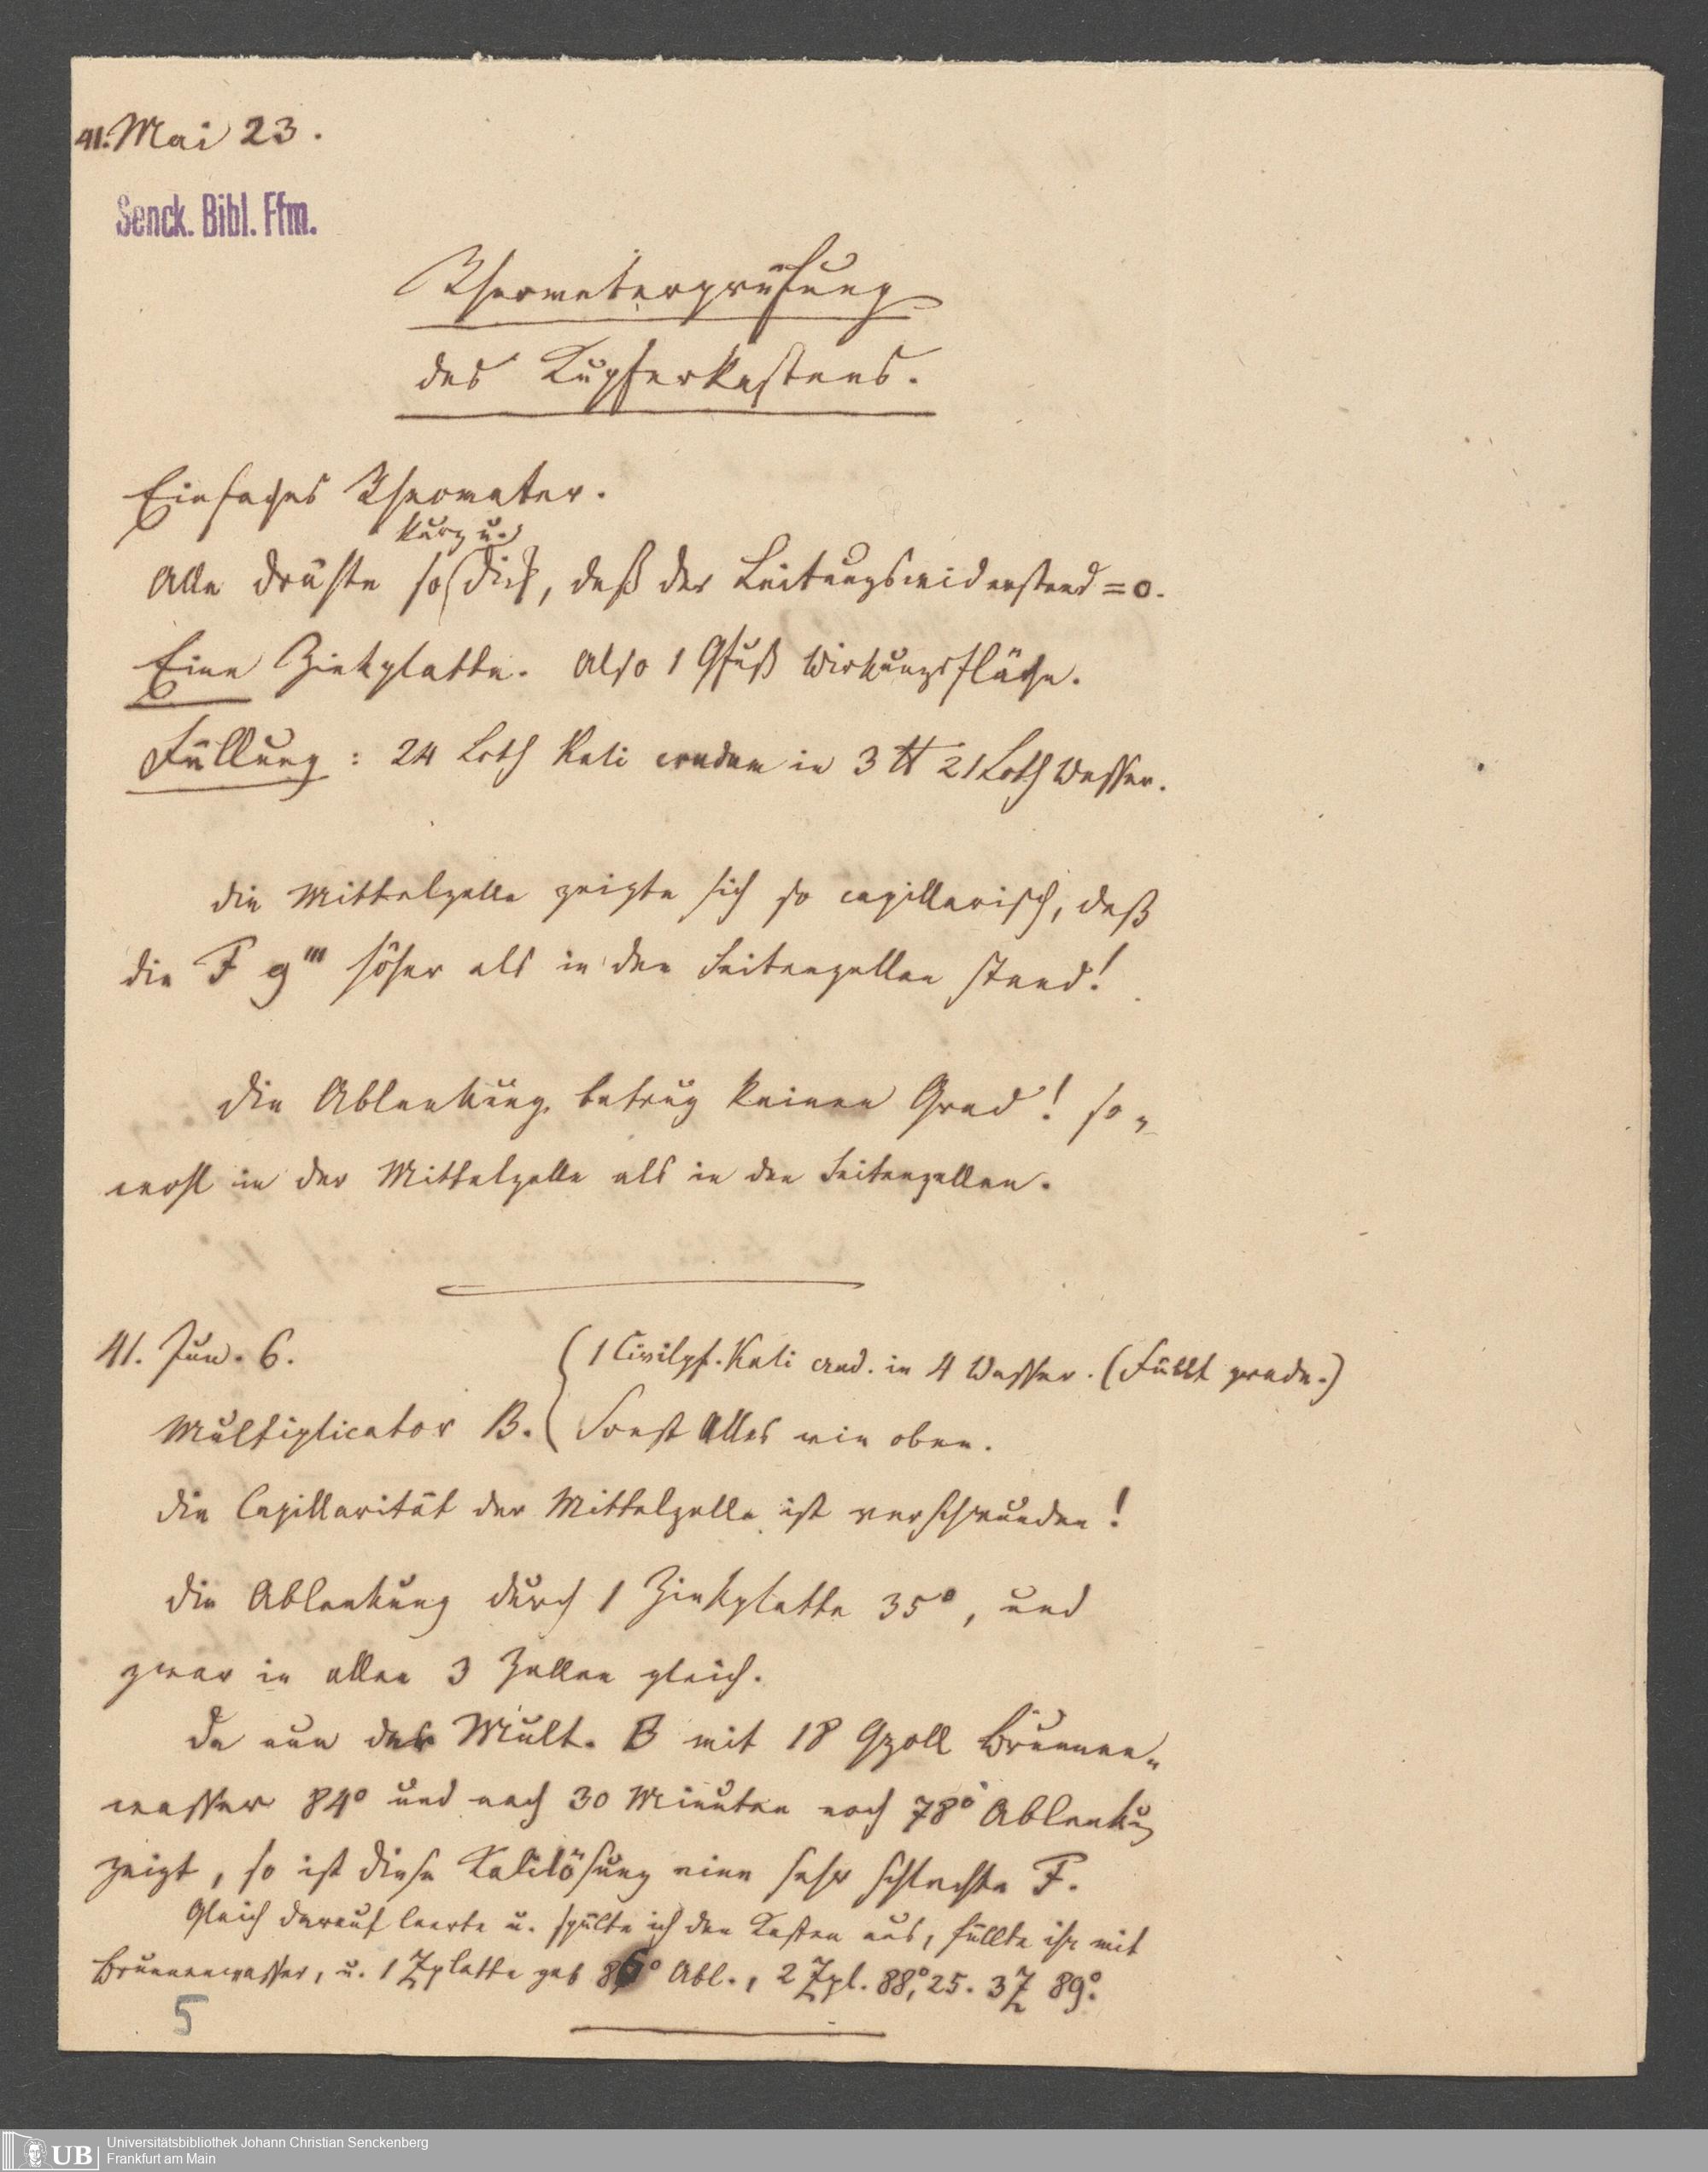 41. Mai 23.
Senck. Bibl. Ffm.
Rheometerprüfung
des Kupferkastens.
Einfaches Rheometer.
kurz u.
Alle Dräthe so dick, daß der Leitungswiderstand = 0.
Eine Zinkplatte. Also 1 Qfuß Wirkungsfläche.
Füllung: 24 Loth Kali crudum in 3 ℔ 21 Loth Wasser.
Die Mittelzelle zeigte sich so capillarisch, daß
die F 9''' höher als in den Seitenzellen stand!
Die Ablenkung betrug keinen Grad! so-
wohl in der Mittelzelle als in den Seitenzellen.
41. Jun. 6.
{1 Civilpf. Kali crud. in 4 Wasser. (Füllt grade.)
Multiplicator B. { Sonst Alles wie oben.
Die Capillarität der Mittelzelle ist verschwunden!
Die Ablenkung durch 1 Zinkplatte 35°, und
zwar in allen 3 Zellen gleich.
Da nun der Mult. B mit 18 Qzoll Brunnen-
wasser 84° und nach 30 Minuten noch 78° Ablenkg
zeigt, so ist diese Kalilösung eine sehr schlechte F.
Gleich darauf leerte u. spülte ich den Kasten aus, füllte ihn mit
Brunnenwasser, u. 1 Zplatte gab 86° Abl., 2 Zpl. 88°,25. 3 Z 89°.
5
UB
Universitätsbibliothek Johann Christian Senckenberg
Frankfurt am Main